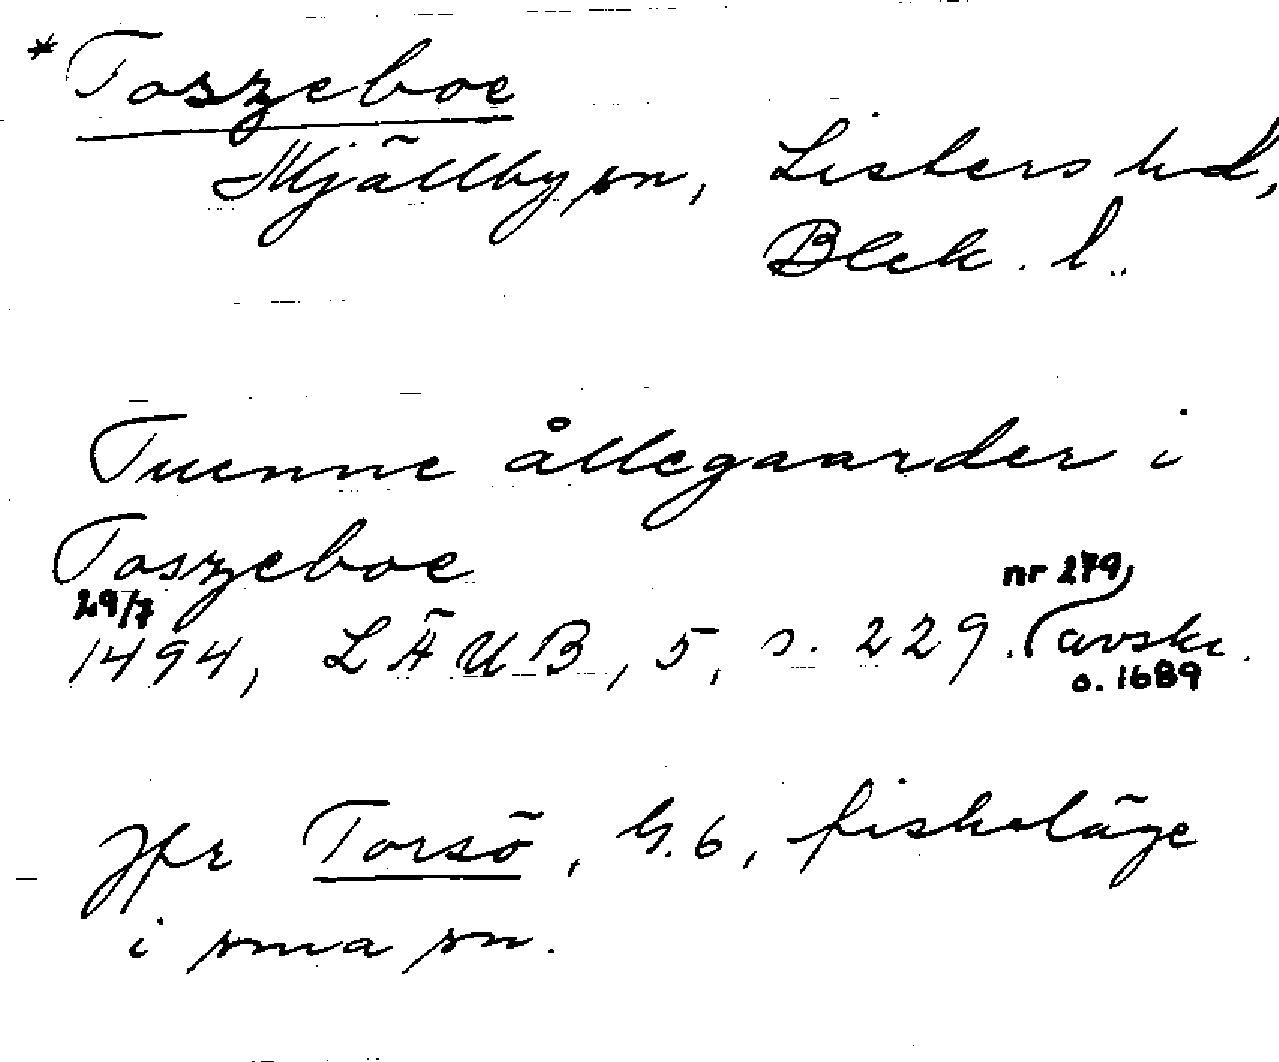 *Toszeboe
Mjällby sn, Listers hd,
Blek. l.
Tuenne ållegaarder i
Toszeboe
29/7 nr 279,
1494, LÄUB, 5, s. 229. (avskr.
o. 1689
Jfr Torsö, G. 6, fiskeläge
i sma sn.